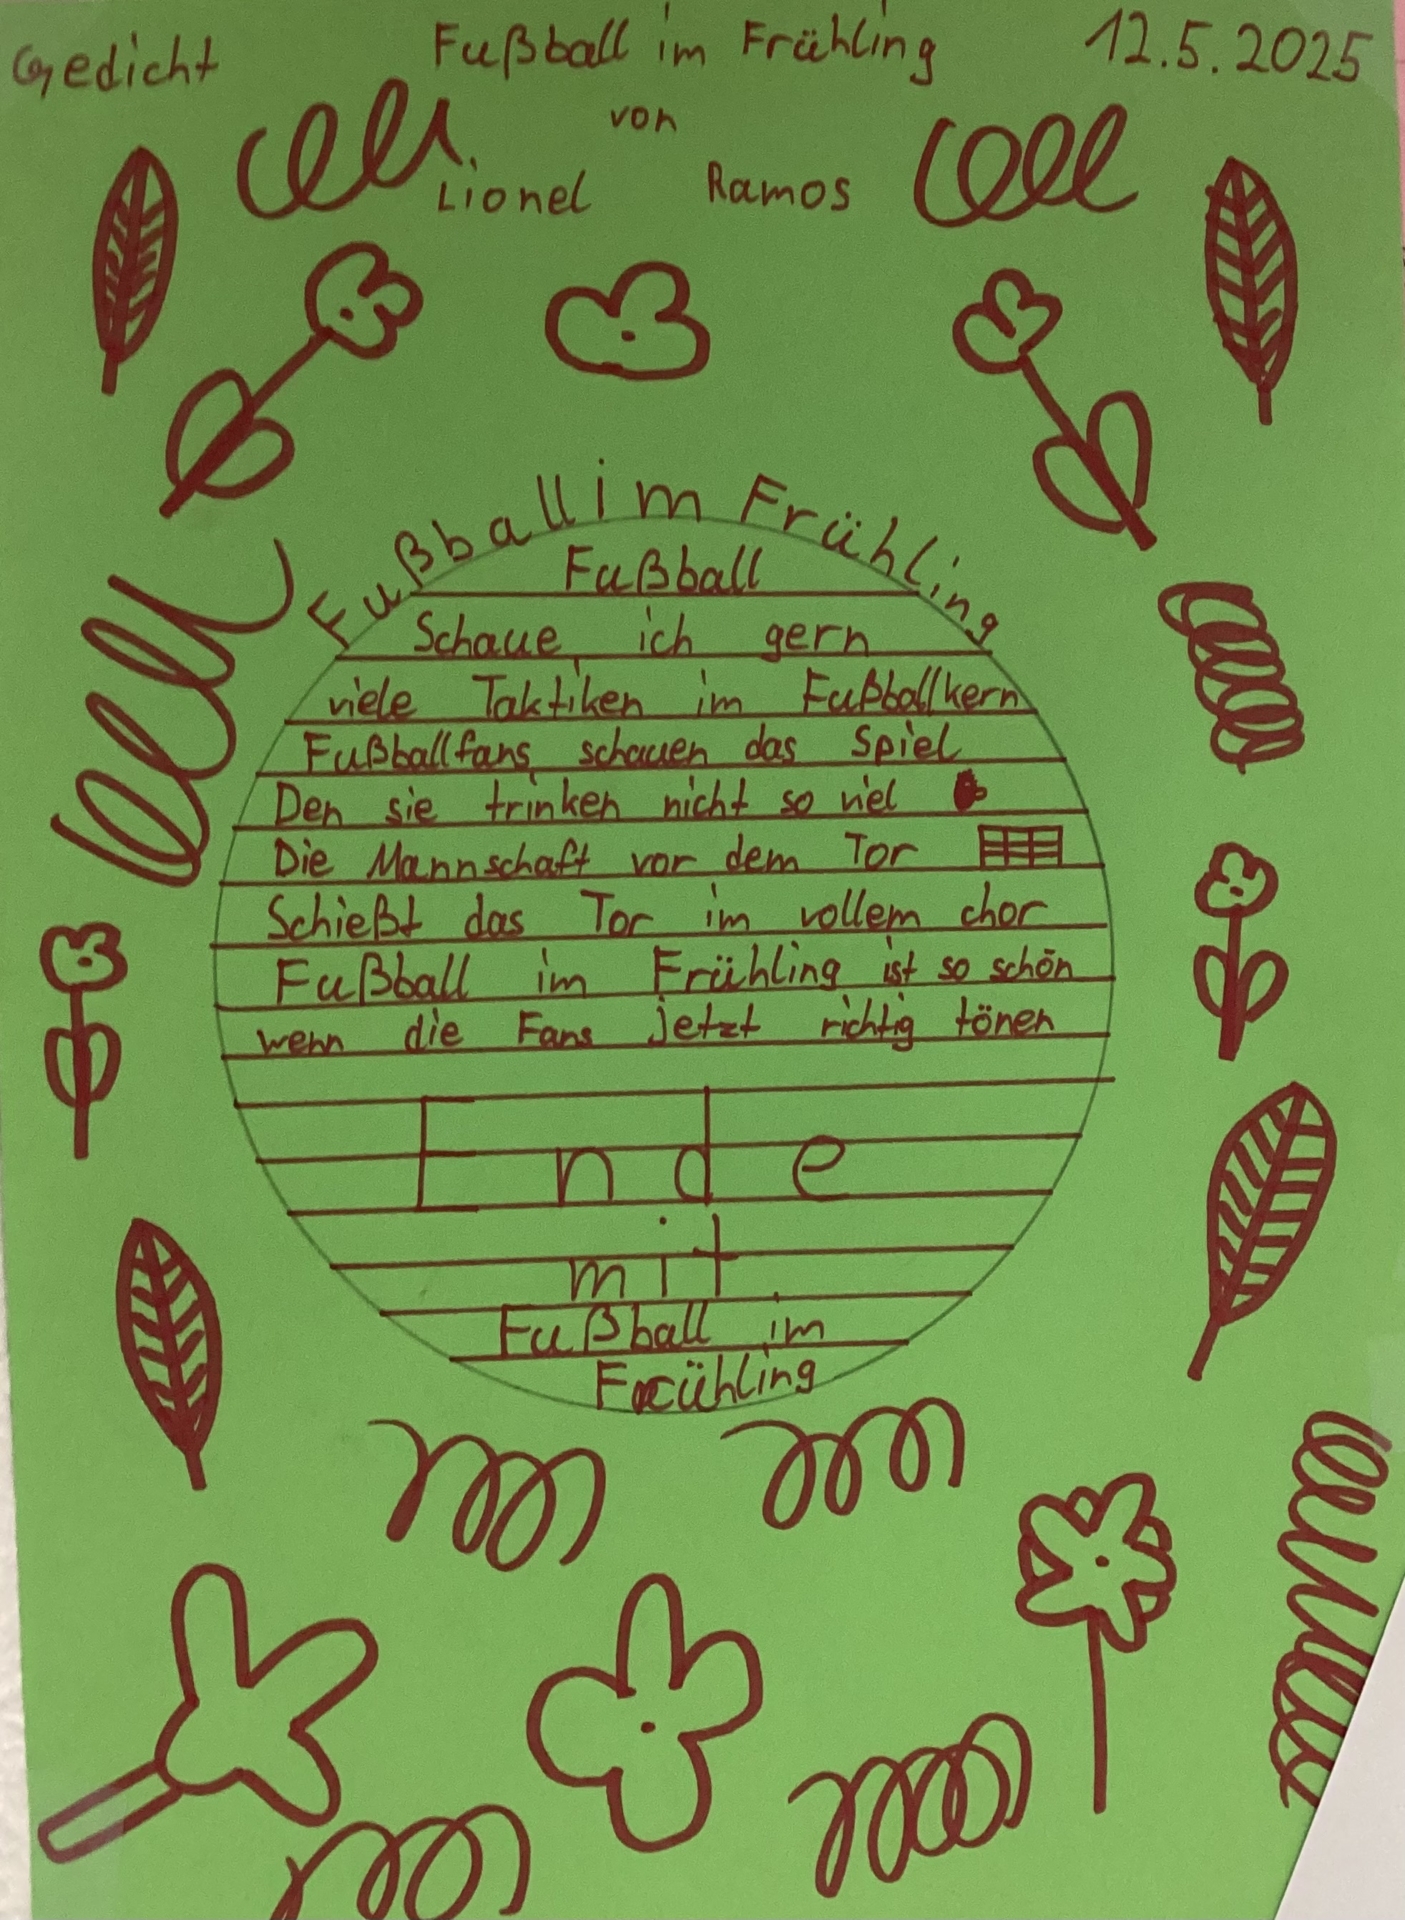 Gedicht Fußball im Frühling 12.5.2025
von
Lionel Ramos
Fußball im Frühling
Fußball
Schaue ich gern
viele Taktiken im Fußballkern
Fußballfans schauen das Spiel
Den sie trinken nicht so viel
Die Mannschaft vor dem Tor
Schießt das Tor im vollem chor
Fußball im Frühling ist so schön
wenn die Fans jetzt richtig tönen
Ende
mit
Fußball im
Frühling